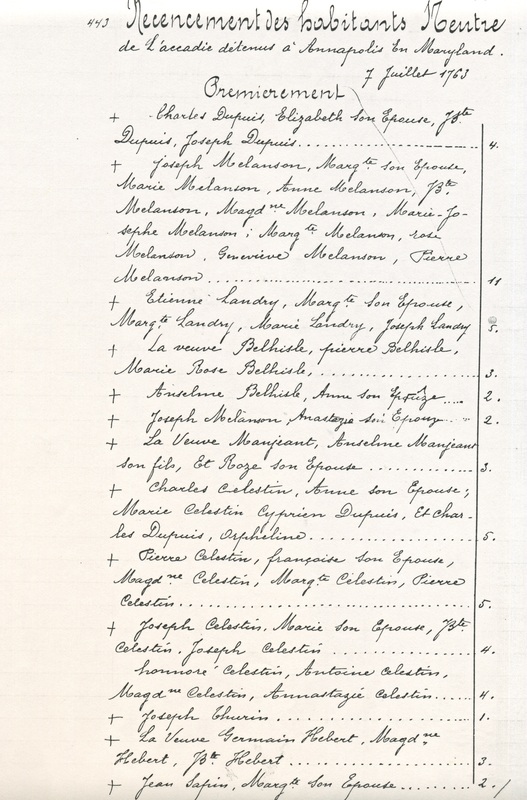 443 Recencement des habitants Neutre
de L'accadie détenus à Annapolis En Maryland.
7 Juillet 1763
Premierement
+ Charles Dupuis, Elizabeth son Epouse, JBte
Dupuis, Joseph Dupuis.................. 4.
+ Joseph Melanson, Margte son Epouse,
Marie Melanson, Anne Melanson, JBte
Melanson, Magdne Melanson, Marie-Jo-
sephe Melanson; Margte Melanson, rose
Melanson, Geneviève Melanson, Pierre
Melanson .................. 11
+ Etienne Landry, Margte Son Epouse,
Margte Landry, Marie Landry, Joseph Landry 5.
+ La veuve Belhisle, pierre Belhisle,
Marie Rose Belhisle, .................. 3.
+ Anselme Belhisle, Anne son Epouze .... 2.
+ Joseph Melanson, Anastazie son Epouze ... 2.
+ La Veuve Manjeant, Anselme Manjeant
son fils, Et Roze son Epouse .............. 3.
+ Charles Celestin, Anne son Epouse;
Marie Celestin Cyprien Dupuis, Et Char-
les Dupuis, Orpheline .................. 5.
+ Pierre Celestin, françoise son Epouse,
Magdne Celestin, Margte Célestin, Pierre
Celestin .................. 5.
+ Joseph Celestin, Marie son Epouse, JBte
Celestin, Joseph Celestin .................. 4.
honnoré Celestin, Antoine Celestin,
Magdne Celestin, Annastazie Celestin..... 4.
+ Joseph Thurin .................. 1.
+ La Veuve Germain Hebert, Magdne
Hebert, JBte Hebert .................. 3.
+ Jean Sapin, Margte Son Epouse ........ 2./